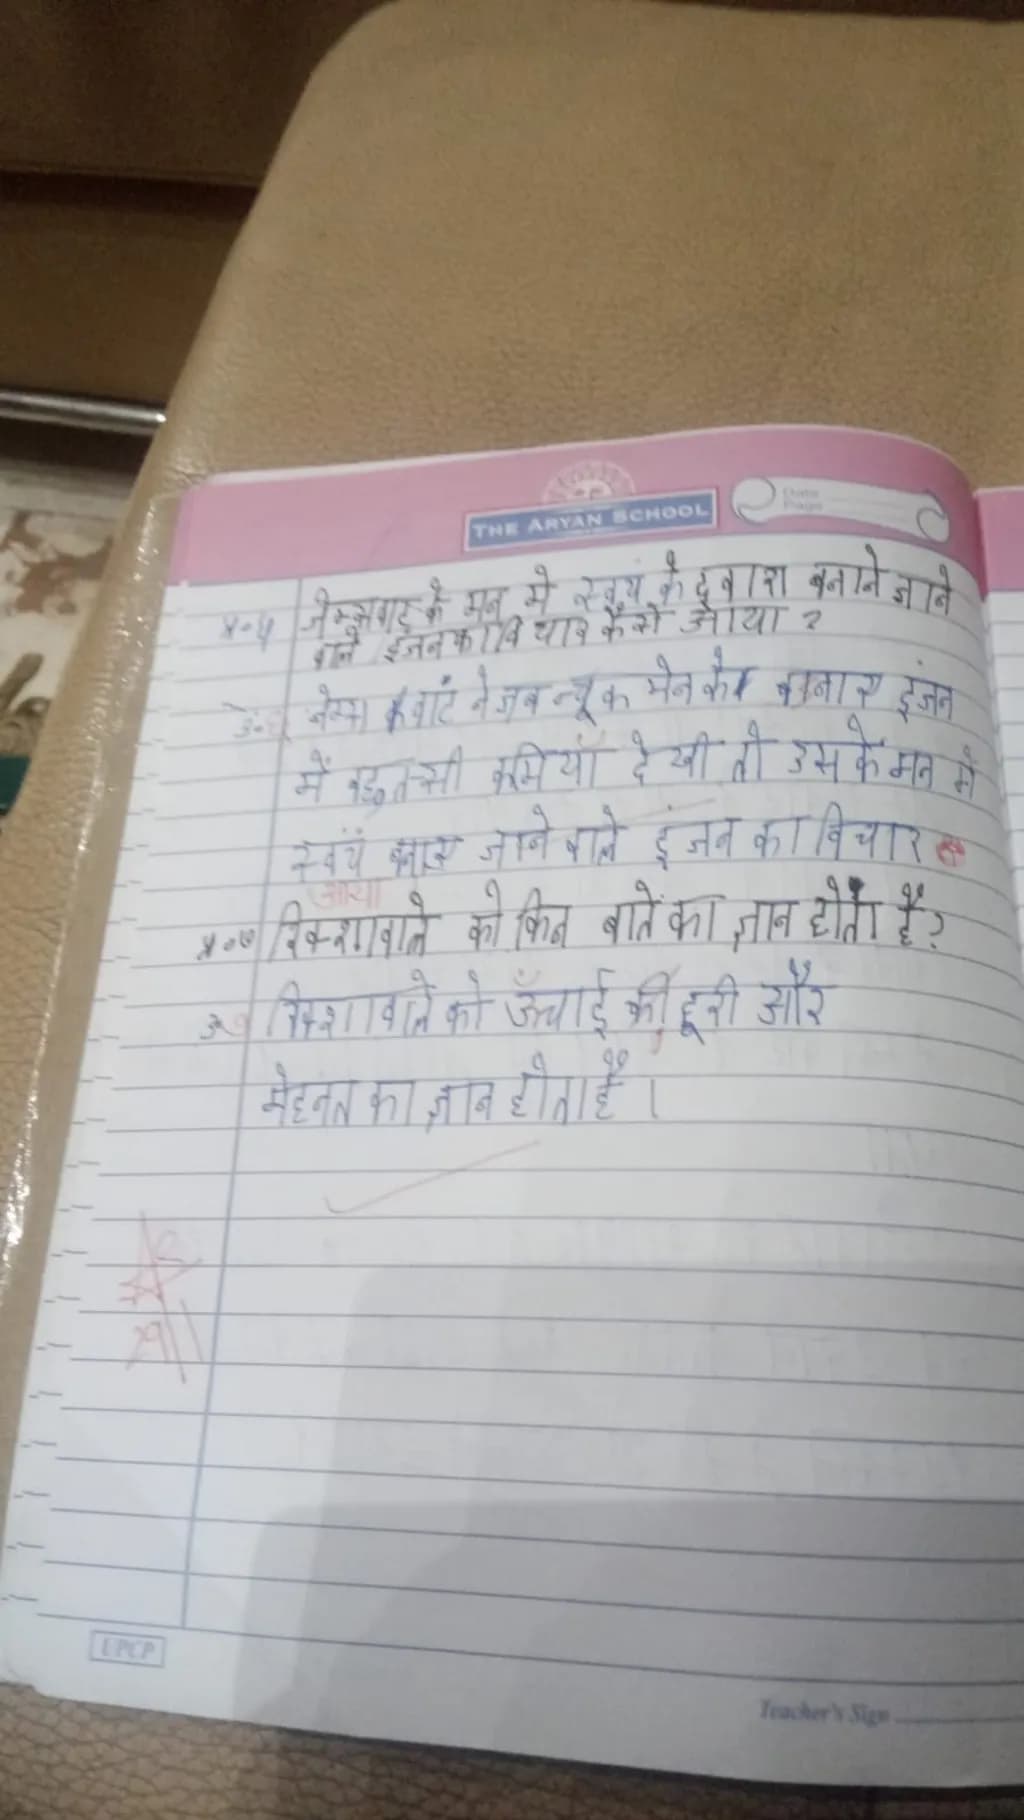 THE ARYAN SCHOOL
Date
Page
जेम्सवाट के मन मे स्वयं के द्वारा बनाने जाने
वाले इंजन का विचार कैसे आया ?
जेम्स वाट ने जब न्यूकमेन के बनाए इंजन
में बहुत-सी कमियाँ देखी तो उसके मन में
स्वयं बनाए जाने वाले इंजन का विचार
आया
रिक्शावाले को किन बातें का ज्ञान होता है?
रिक्शावाले को ऊँचाई की, दूरी और
मेहनत का ज्ञान होता है ।
UPCP
Teacher's Sign